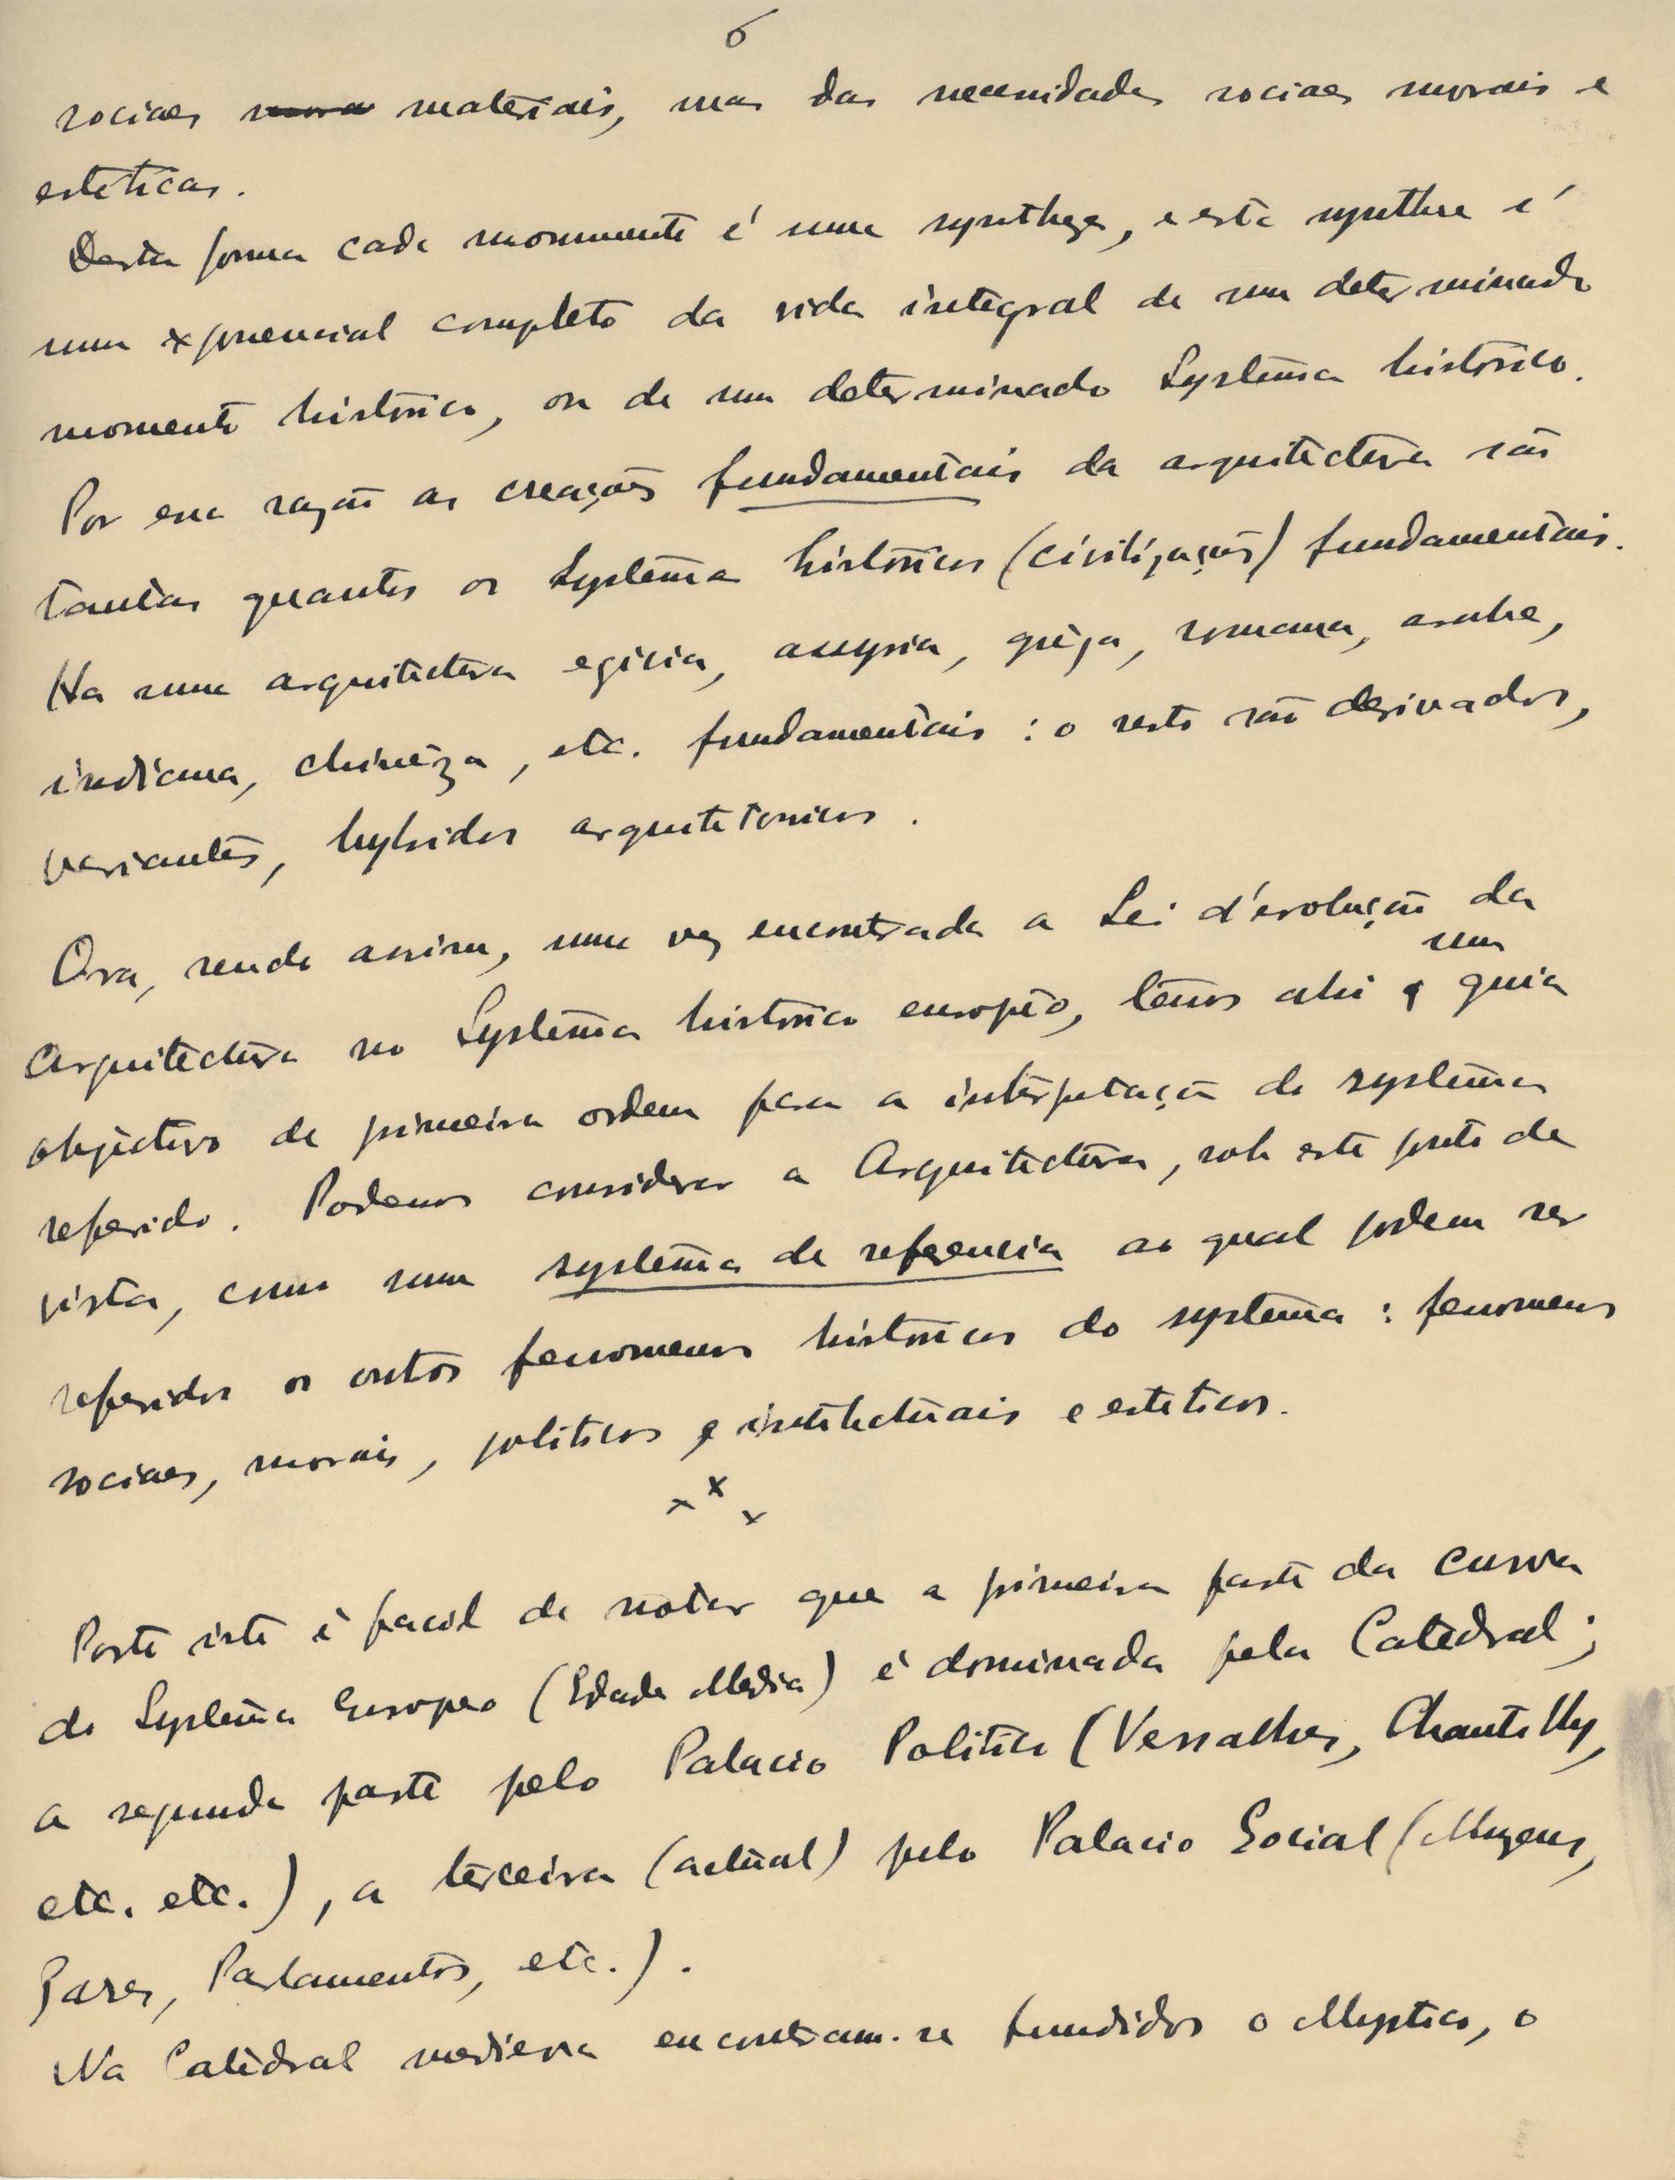 6
sociaes mora materiais, mas das necessidades sociaes morais e
esteticas.
Desta forma cada monumento é uma synthese, e esta synthese é
um exponencial completo da vida integral de um determinado
momento historico, ou de um determinado Systema historico.
Por essa razão as creações fundamentais da arquitectura são
tantas quantos os Systemas historicos (civilizações) fundamentais.
Ha uma arquitectura egicia, assyria, grêga, romana, arabe,
indiana, chinêza, etc. fundamentais: o resto são derivados,
variantes, hybridos arquitetonicos.
Ora, sendo assim, uma vez encontrada a Lei d'evolução da
um
Arquitectura no Systema historico europêo, têmos ahi guia
objectivo de primeira ordem para a interpretação do systema
referido. Podemos considerar a Arquitectura, sob este ponto de
vista, como um systema de referencia ao qual podem ser
referidos os outros fenomenos historicos do systema: fenomenos
sociaes, morais, politicos e intelectuais e esteticos.
x x x
Posto isto é facil de notar que a primeira parte da curva
do Systema Europeo (Edade Media) é dominada pela Catedral;
a segunda parte pelo Palacio Politico (Versalhes, Chantilly,
etc. etc.), a terceira (actual) pelo Palacio Social (Muzeus,
Gares, Parlamentos, etc.).
Na Catedral medieva encontram-se fundidos o Mystico, o